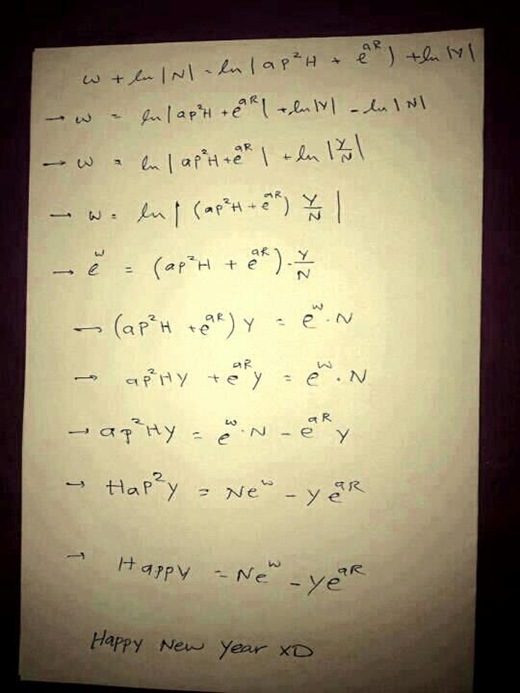 w + ln |N| = ln |ap²H + e^{aR}| + ln |Y|
→ w = ln |ap²H + e^{aR}| + ln |Y| - ln |N|
→ w = ln |ap²H + e^{aR}| + ln |Y/N|
→ w = ln |(ap²H + e^{aR}) Y/N|
→ e^w = (ap²H + e^{aR}) · Y/N
→ (ap²H + e^{aR}) Y = e^w · N
→ ap²HY + e^{aR} y = e^w · N
→ ap²HY = e^w · N - e^{aR} y
→ Hap²y = Ne^w - ye^{aR}
→ Happy = Ne^w - ye^{aR}
Happy New Year XD